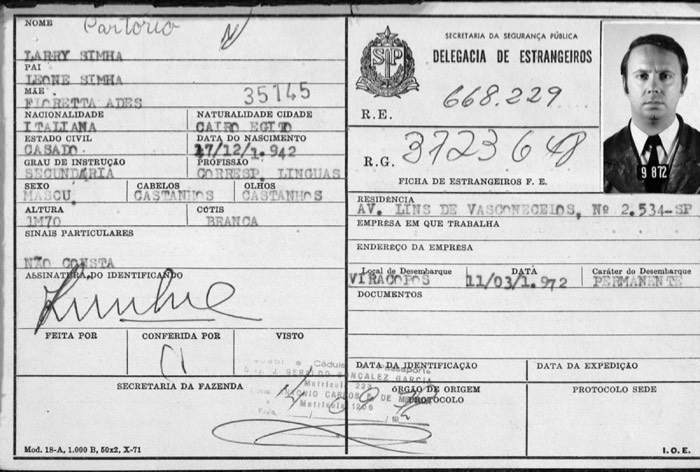 NOME
Partorio
N
LARRY SIMHA
PAI
LEONE SIMHA
MÃE
FIORETTA ADES
35145
NACIONALIDADE NATURALIDADE CIDADE
ITALIANA CAIRO EGITO
ESTADO CIVIL DATA DO NASCIMENTO
CASADO 17/12/1.942
GRAU DE INSTRUÇÃO PROFISSÃO
SECUNDÁRIA CORRESP. LINGUAS
SEXO CABELOS OLHOS
MASCU. CASTANHOS CASTANHOS
ALTURA CÚTIS
1M70 BRANCA
SINAIS PARTICULARES
NÃO CONSTA
ASSINATURA DO IDENTIFICANDO
FEITA POR CONFERIDA POR VISTO
SECRETARIA DA FAZENDA
GONÇALEZ GARCIA
Matricula 223
ANTONIO CARLOS DE
Matricula 1206
Mod. 18-A, 1.000 B, 50x2, X-71
SP
SECRETARIA DA SEGURANÇA PÚBLICA
DELEGACIA DE ESTRANGEIROS
R.E. 668.229
R.G. 3723648
FICHA DE ESTRANGEIROS F. E.
9 872
RESIDÊNCIA
AV. LINS DE VASCONECELOS, Nº 2.534-SP
EMPRESA EM QUE TRABALHA
ENDEREÇO DA EMPRESA
Local de Desembarque DATA Caráter do Desembarque
VIRACOPOS 11/03/1.972 PERMANENTE
DOCUMENTOS
DATA DA IDENTIFICAÇÃO DATA DA EXPEDIÇÃO
ÓRGÃO DE ORIGEM PROTOCOLO SEDE
PROTOCOLO
I.O.E.